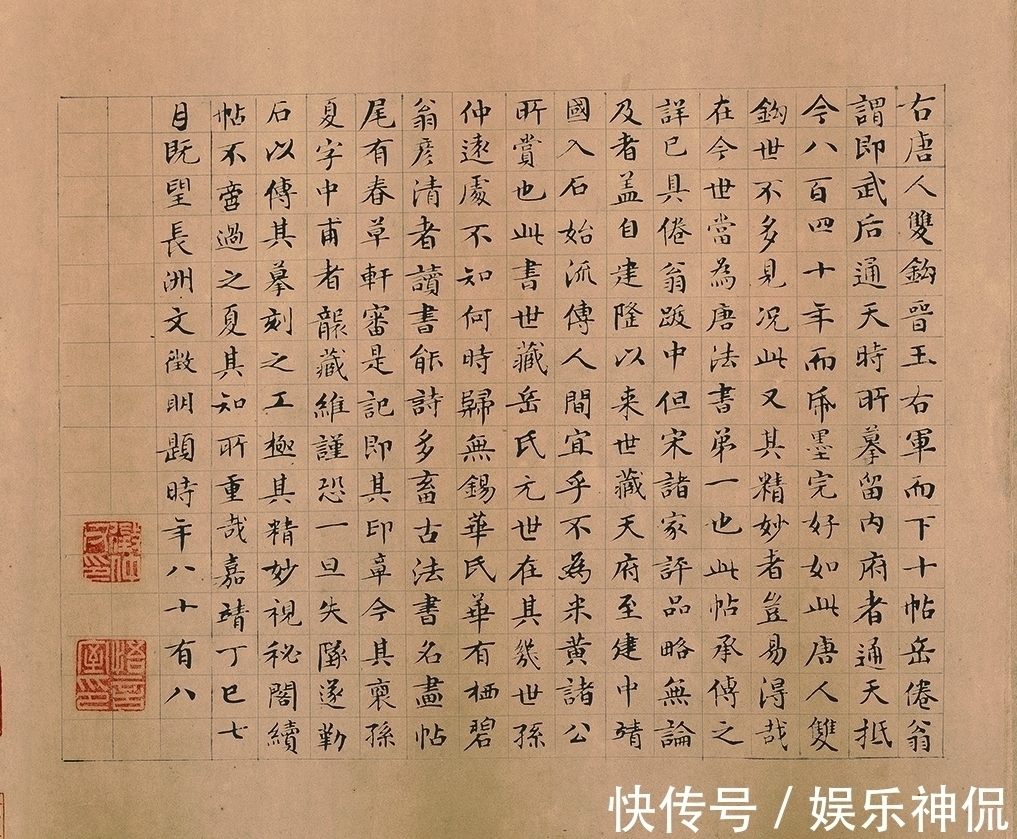 右唐人雙鈎晉王右軍而下十帖岳倦翁
謂即武后通天時所摹留內府者通天抵
今八百四十年而𥿄墨完好如此唐人雙
鈎世不多見况此又其精妙者豈易淂哉
在今世當為唐法書弟一也此帖承傳之
詳已具倦翁跋中但宋諸家評品略無論
及者盖自建隆以来世藏天府至建中靖
國入石始流傳人間宜乎不為米黄諸公
所賞也此書世藏岳氏元世在其幾世孫
仲遠處不知何時歸無錫華氏華有栖碧
翁彦清者讀書能詩多畜古法書名畫帖
尾有春草軒審是記即其印章今其裔孫
夏字中甫者襲藏維謹恐一旦失墜遂勒
石以傳其摹刻之工極其精妙視秘閣續
帖不啻過之夏其知所重哉嘉靖丁巳七
月既望長洲文徵明題時年八十有八
快传号 / 娱乐神侃